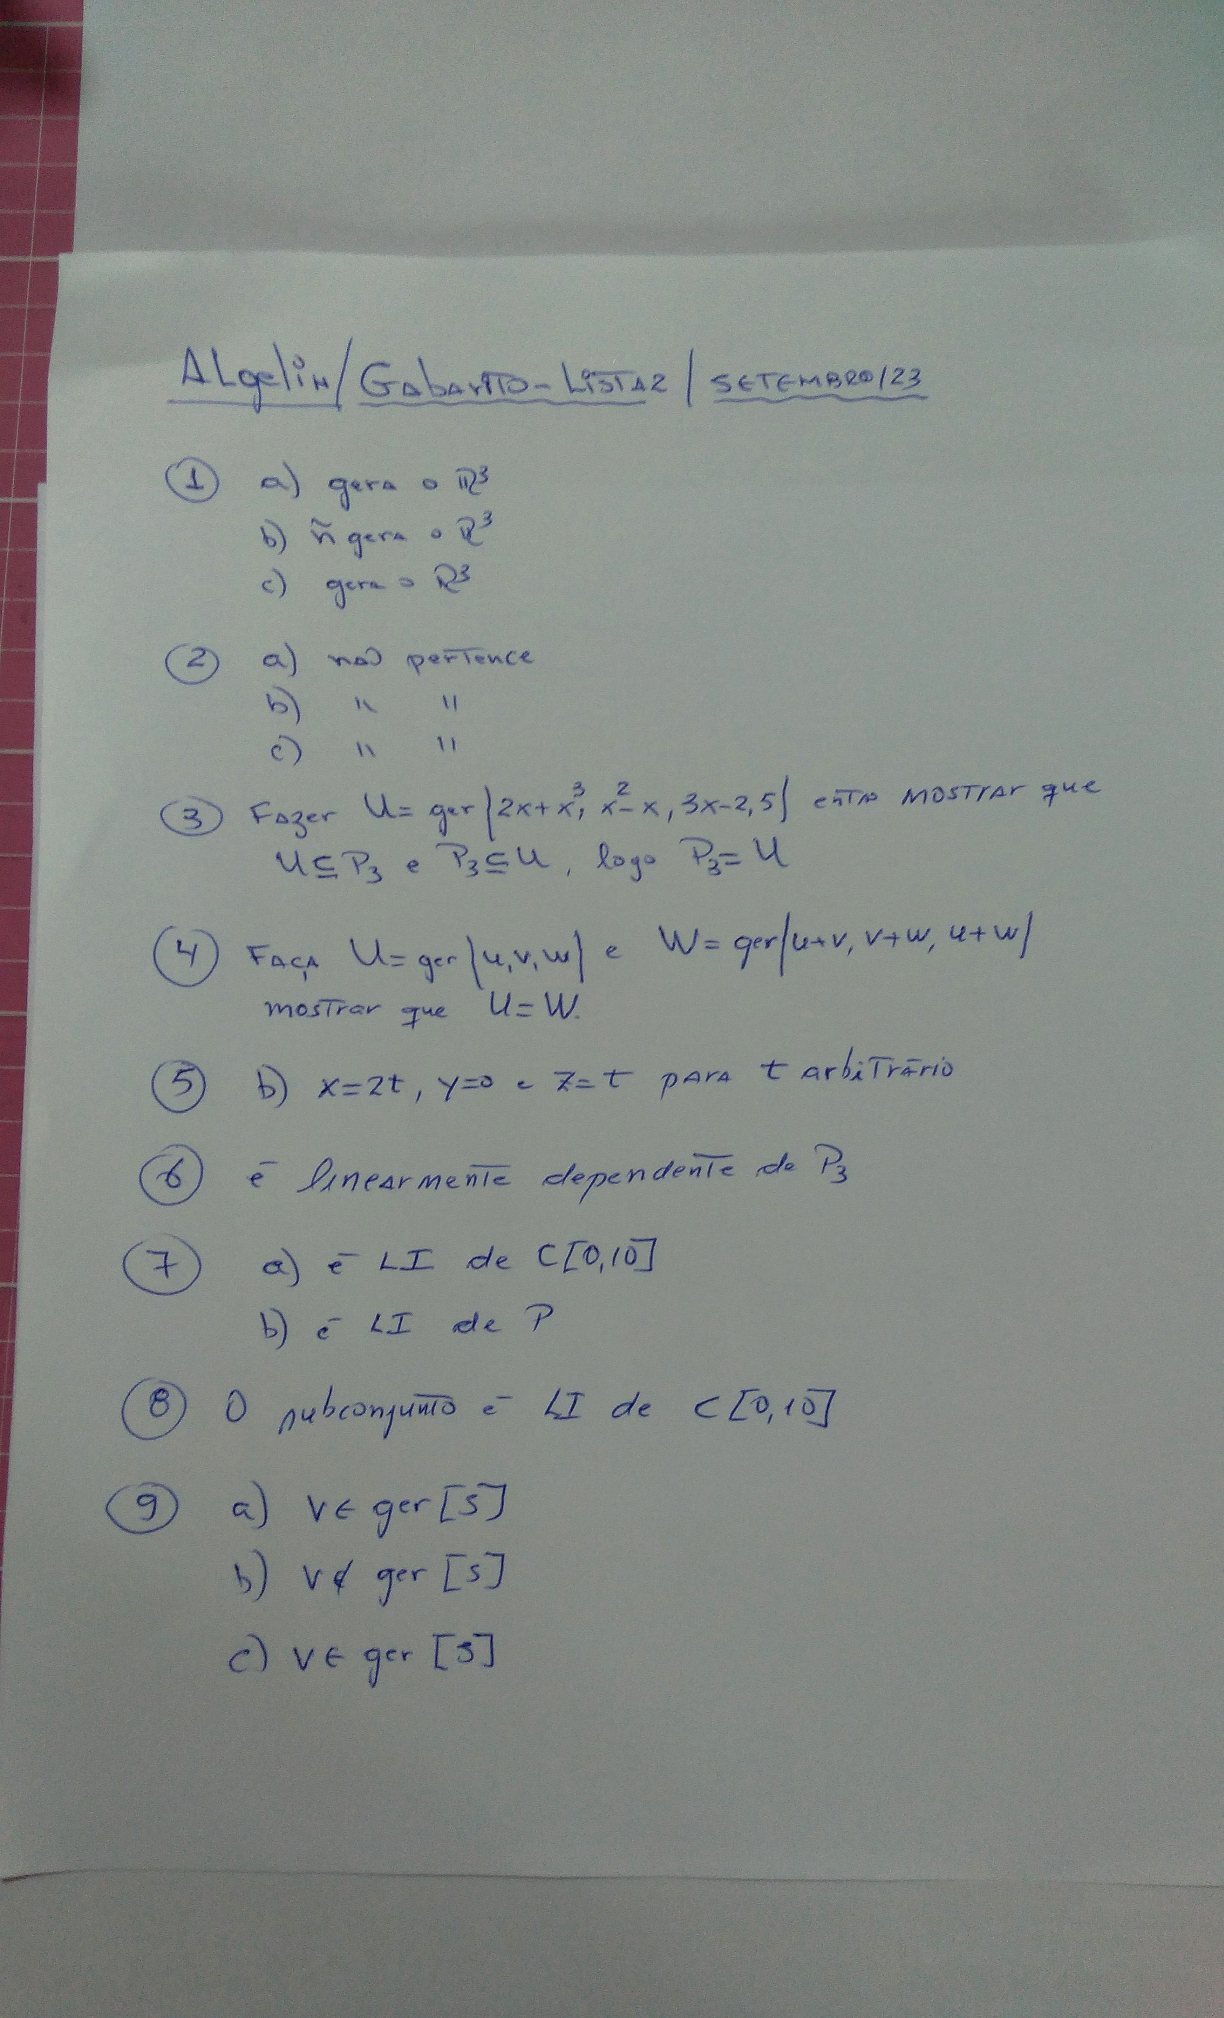 ALgeliN/Gabarito-Lista2/SETEMBRO/23
1 a) gera o ℝ³
b) ñ gera o ℝ³
c) gera o ℝ³
2 a) não pertence
b) " "
c) " "
3 Fazer U= ger{2x+x³, x²-x, 3x-2, 5} então mostrar que
U⊆P₃ e P₃⊆U, logo P₃=U
4 Faça U= ger{u,v,w} e W= ger{u+v, v+w, u+w}
mostrar que U=W.
5 b) x=2t, y=0 e z=t para t arbitrário
6 é linearmente dependente de P₃
7 a) é LI de C[0,10]
b) é LI de P
8 O subconjunto é LI de C[0,10]
9 a) v∈ ger[S]
b) v∉ ger[S]
c) v∈ ger[S]